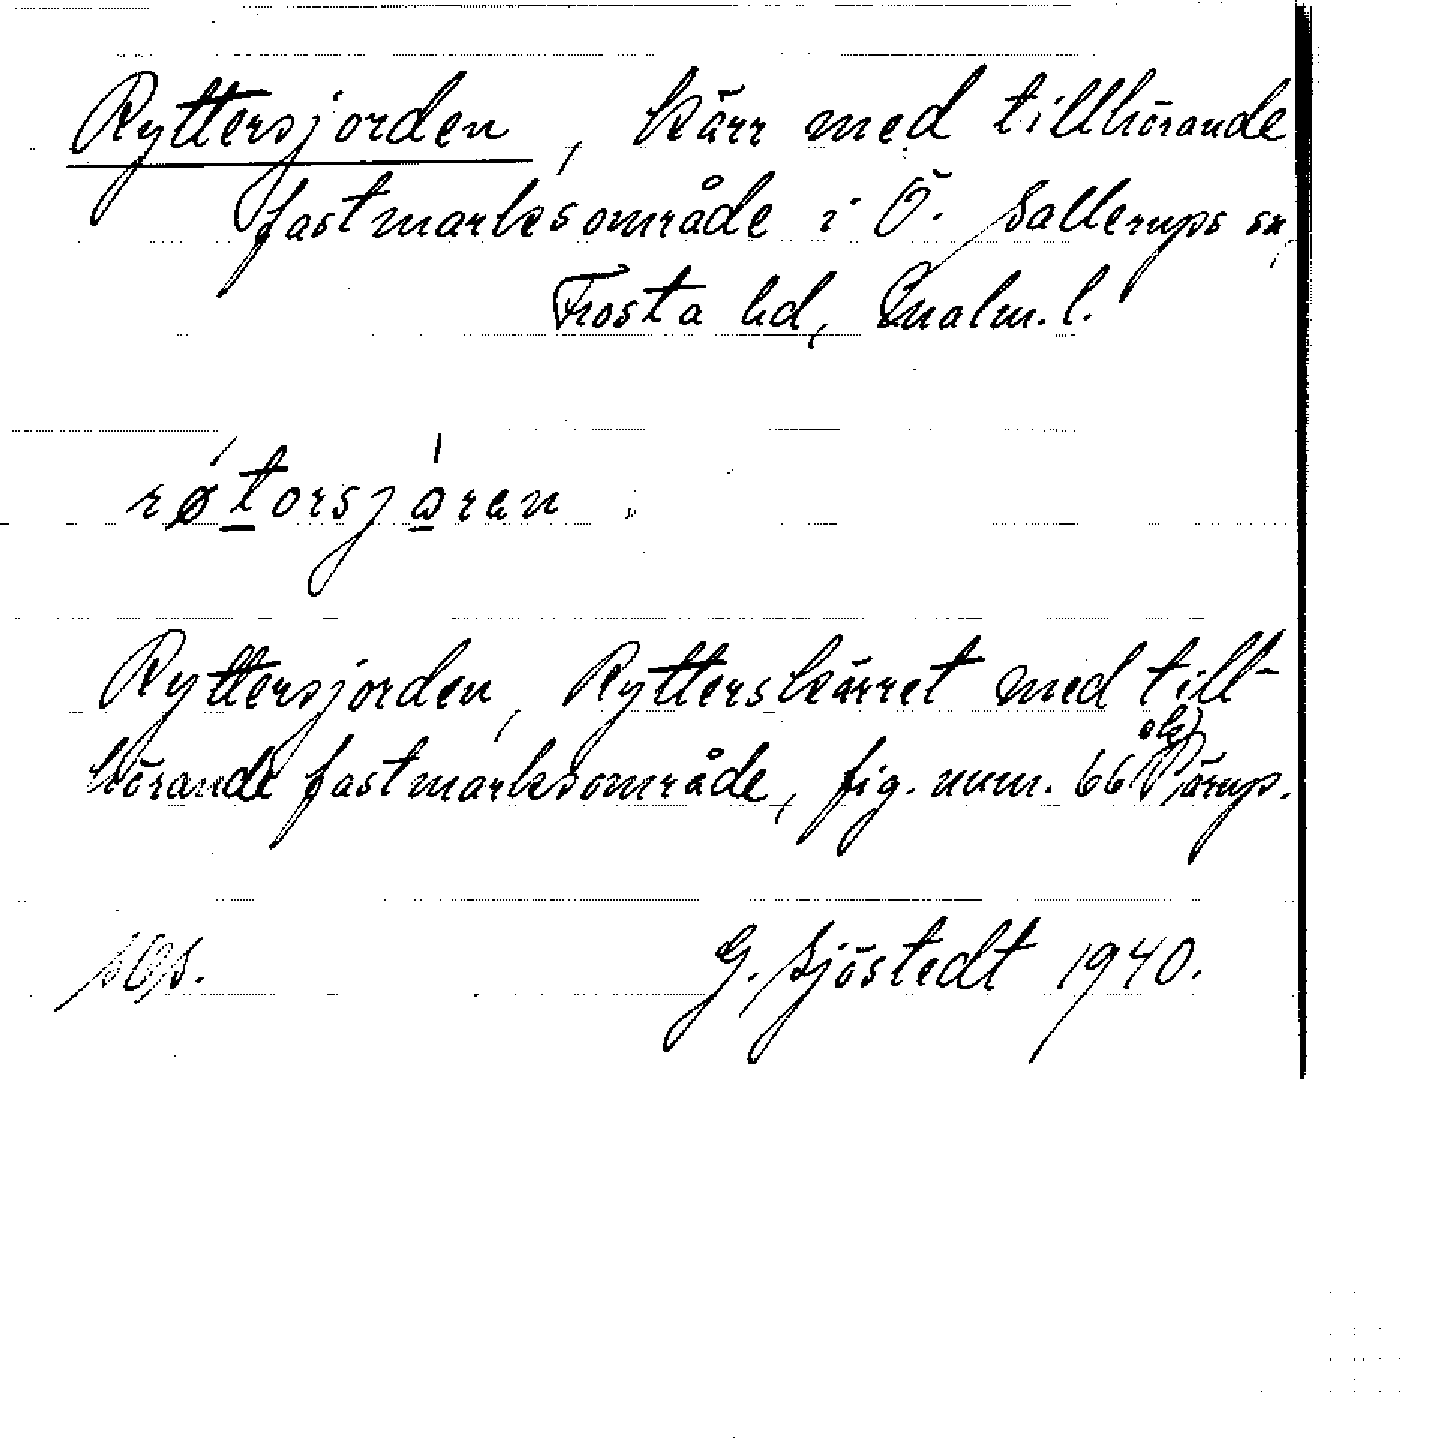 Ryttersjorden, kärr med tillhörande
fastmarksområde i Ö. Sallerups sn,
Frosta hd, Malm. l.
røtorsjoran
Ryttersjorden, Rytterskärret med till-
hörande fastmarksområde, fig. num. 66 Pärup.
G. Sjöstedt 1940.